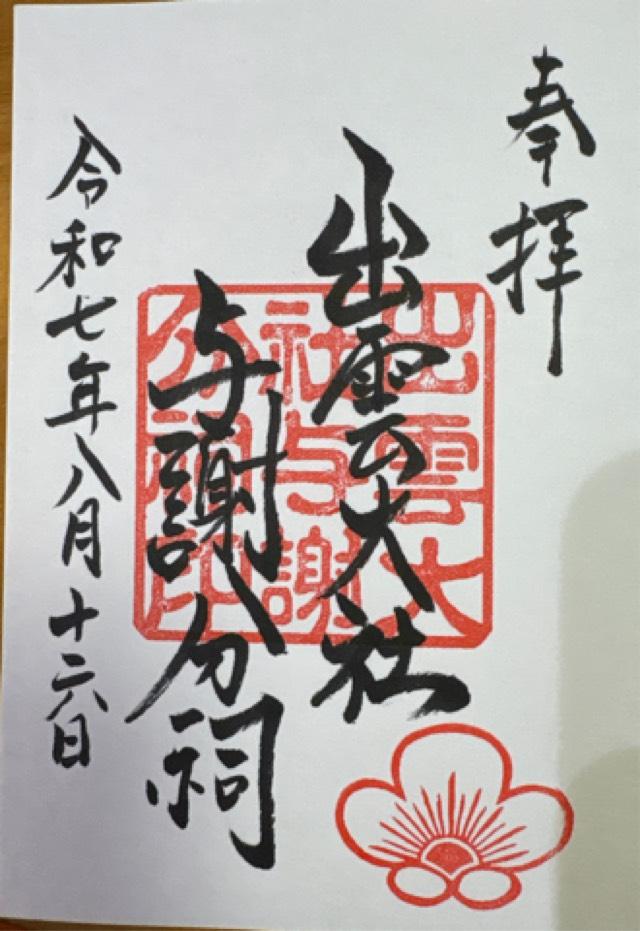 奉拝
出雲大社
与謝分祠
令和七年八月十六日
出雲大
社与謝
分祠印